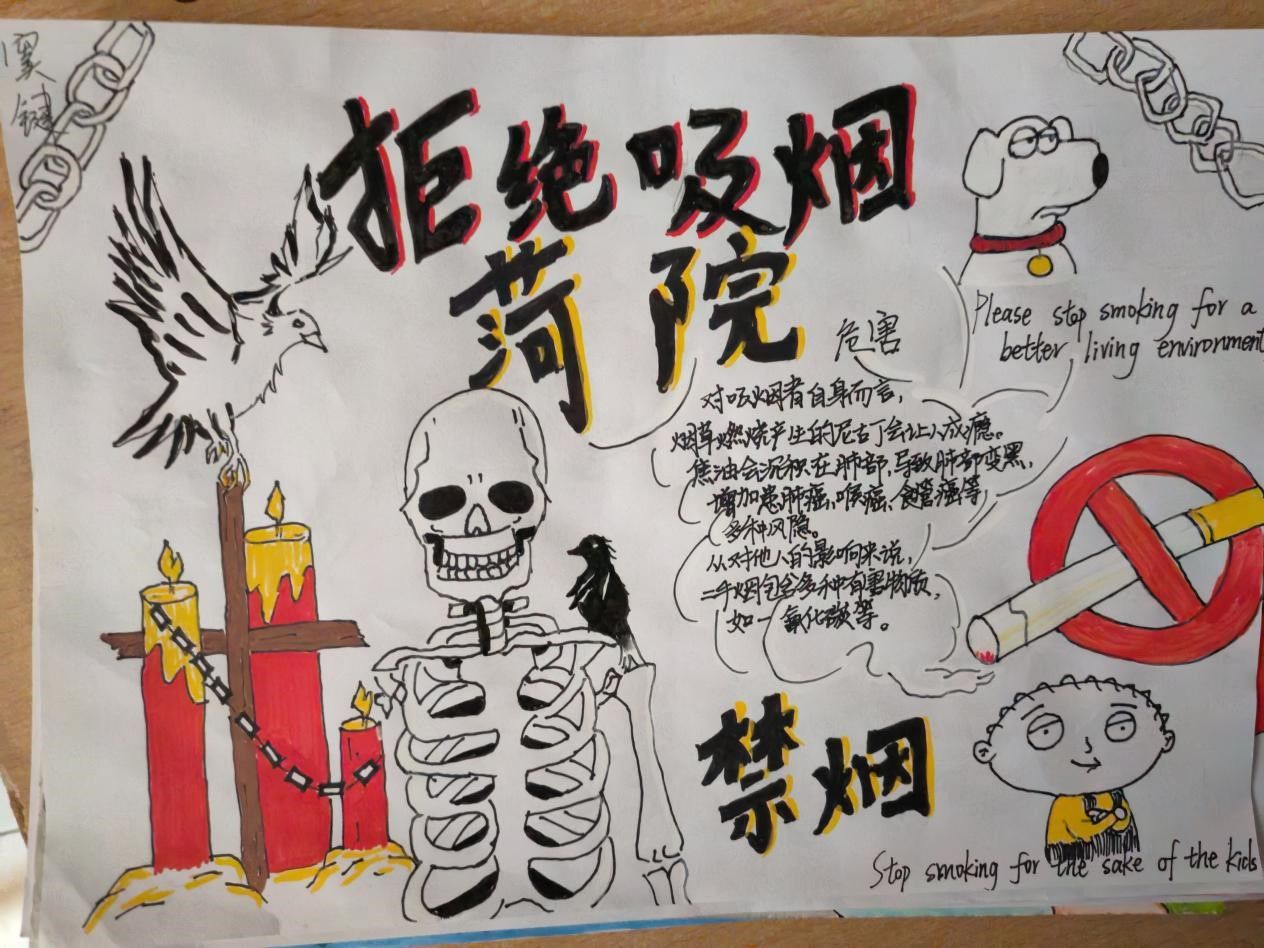 键
拒绝吸烟
菏院
危害
Please stop smoking for a
better living environment
对吸烟者自身而言,
烟草燃烧产生的尼古丁会让人成瘾。
焦油会沉积在肺部,导致肺部变黑,
增加患肺癌、喉癌、食管癌等
多种风险。
从对他人的影响来说,
二手烟包含多种有害物质,
如一氧化碳等。
禁烟
Stop smoking for the sake of the kids